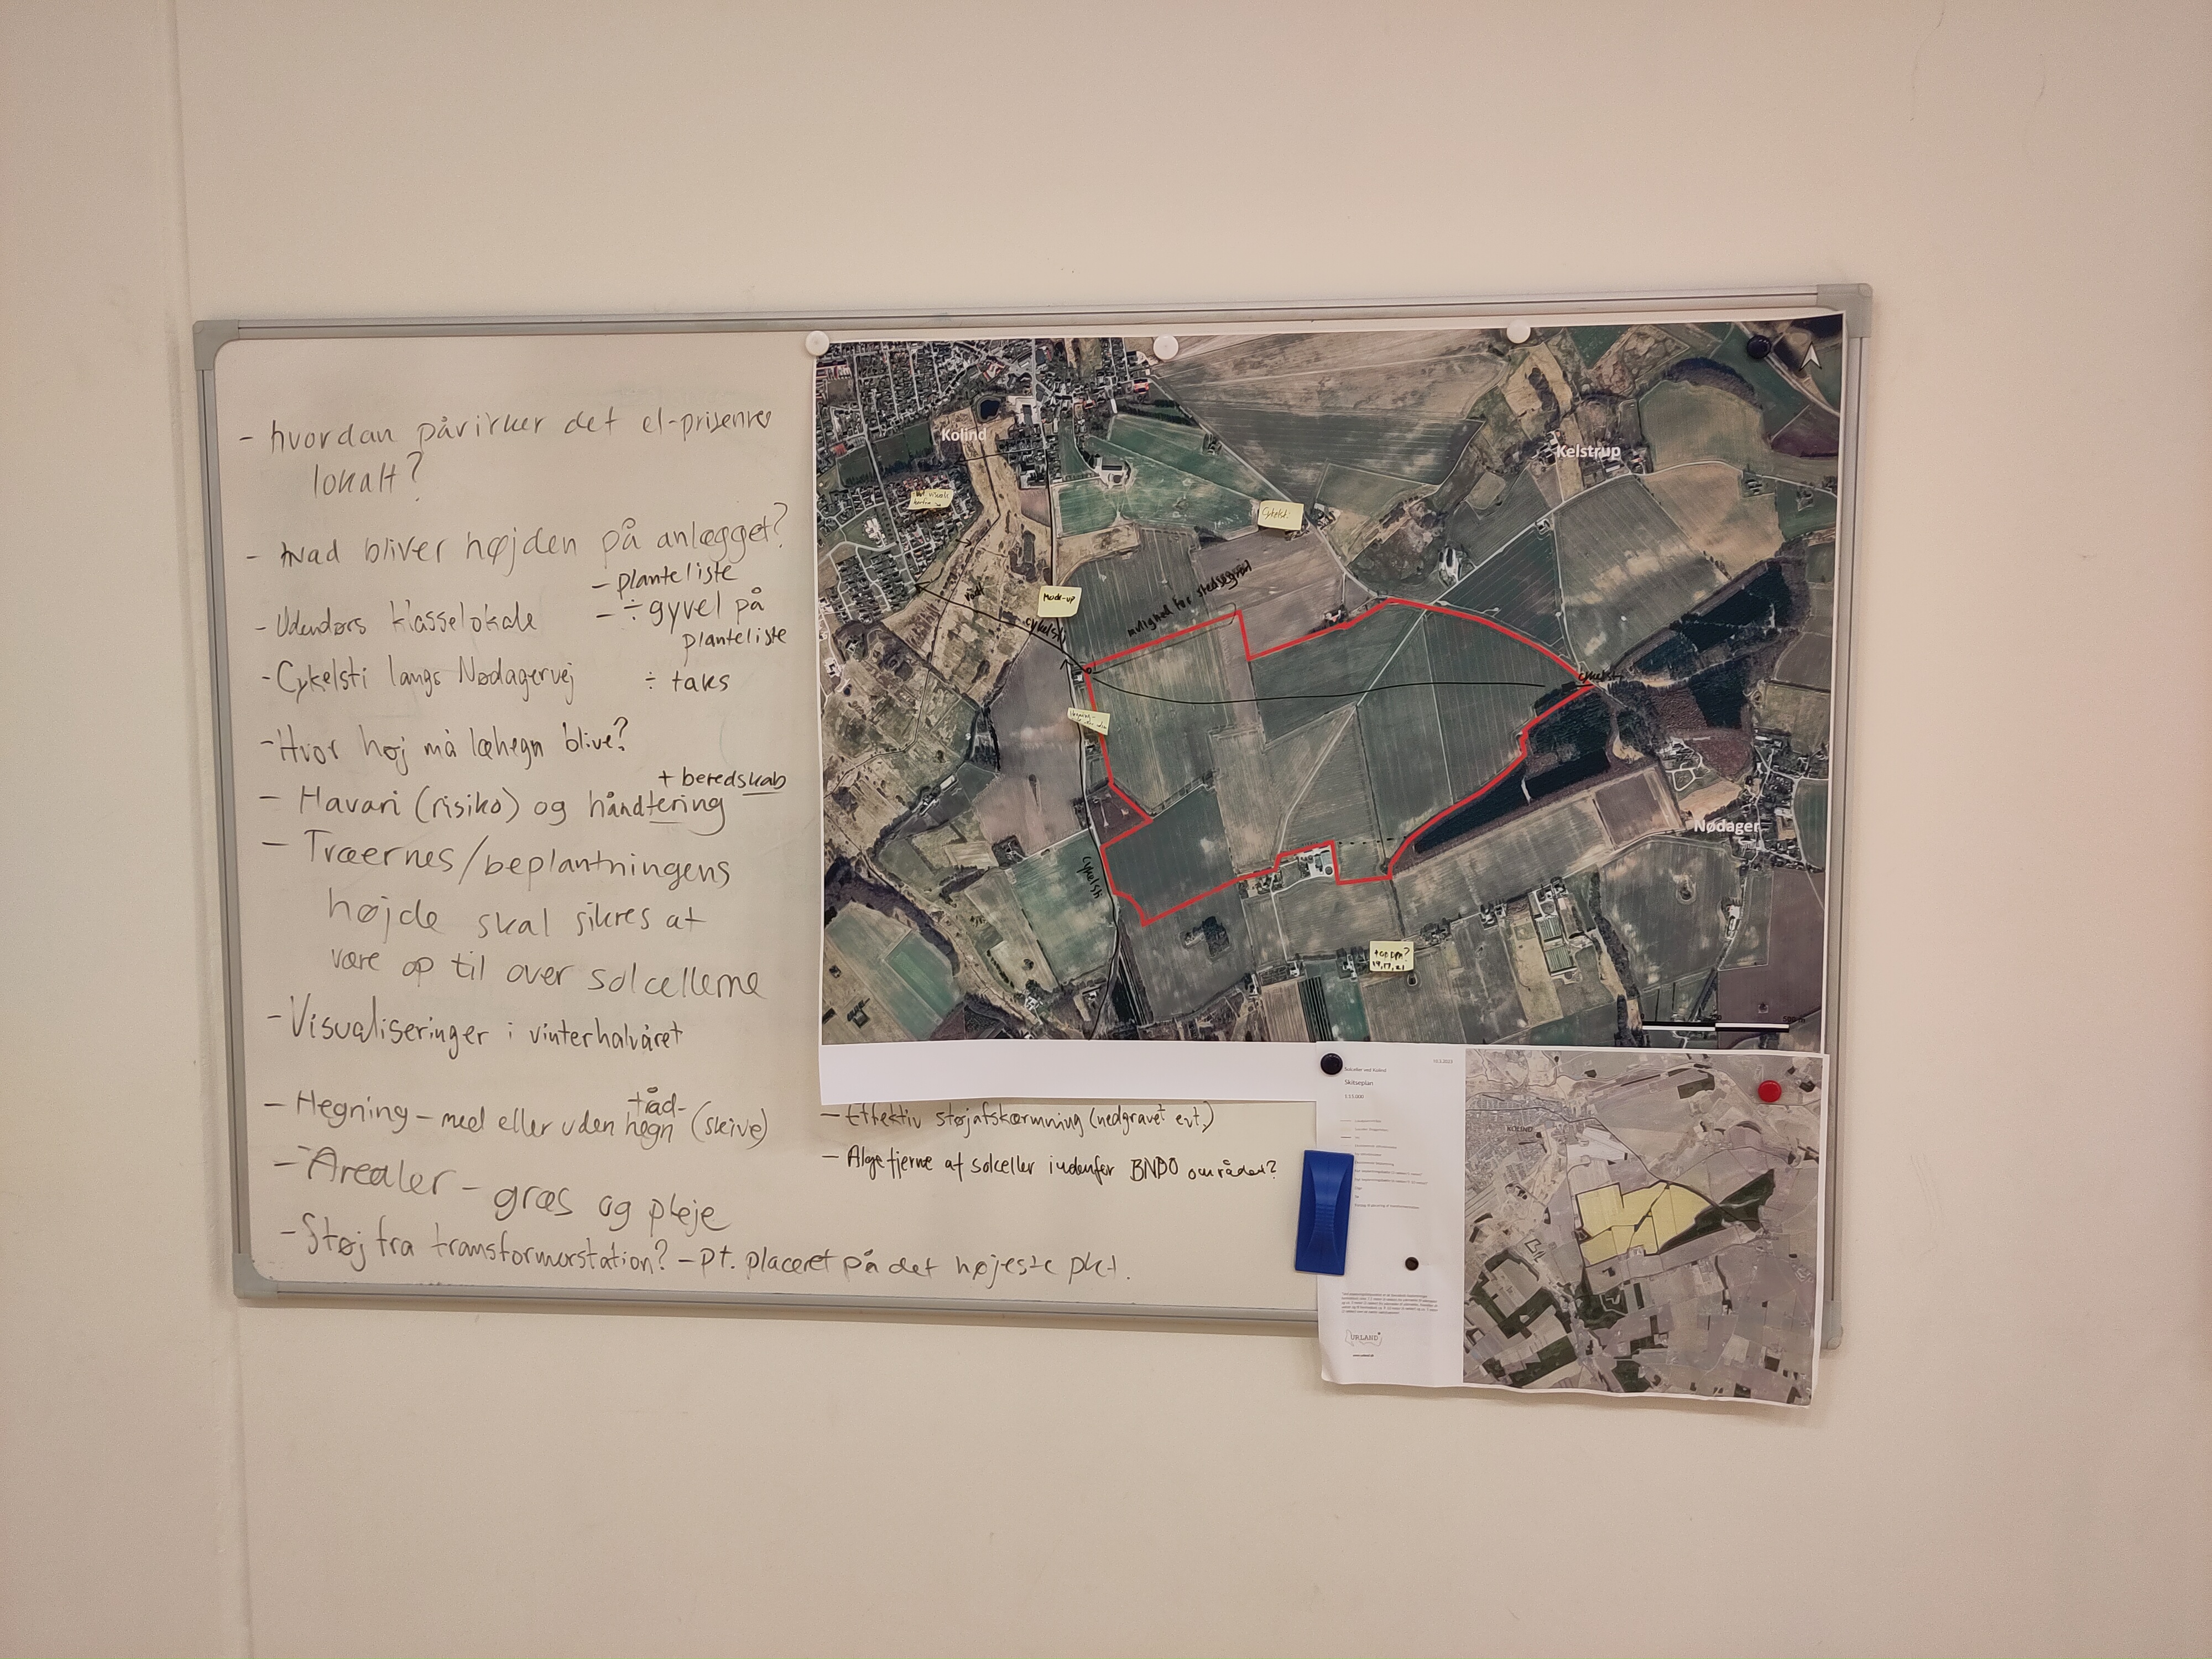 - hvordan påvirker det el-priserne
lokalt?
- hvad bliver højden på anlægget?
- planteliste
- ÷ gyvel på
planteliste
÷ taks
- Udendørs klasselokale
- Cykelsti langs Nødagervej
- Hvor høj må læhegn blive?
+ beredskab
- Havari (risiko) og håndtering
- Træernes/beplantningens
højde skal sikres at
være op til over solcellerne
- Visualiseringer i vinterhalvåret
- Hegning - med eller uden tråd-
hegn (skive)
- Arealer - græs og pleje
- Støj fra transformorstation? - pt. placeret på det højeste pkt.
- Effektiv støjafskærmning (nedgravet evt.)
- Algefjerne af solceller indenfor BNBO området?
Kolind
Kelstrup
Cykelsti
Mock-up
mulighed for stedsegrøn
cykelsti
cykelsti
Nødager
cykelsti
19, 17, 21
Solceller ved Kolind
Skitseplan
KOLIND
URLAND